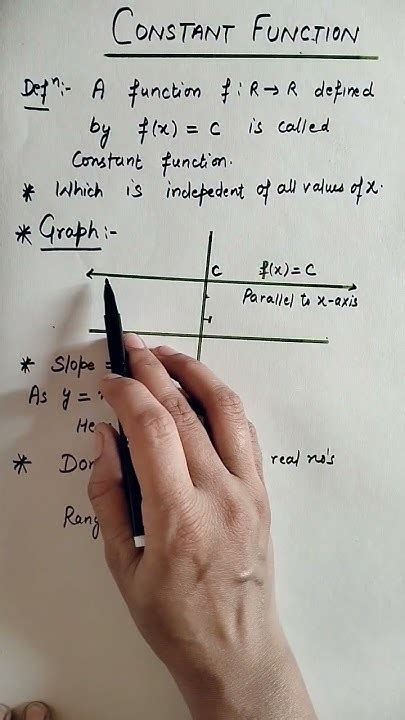 CONSTANT FUNCTION
Defⁿ:- A function f : R → R defined
by f(x) = C is called
Constant function.
* Which is indepedent of all values of x.
* Graph :-
C f(x) = C
Parallel to x-axis
* Slope =
As y =
*
real no's